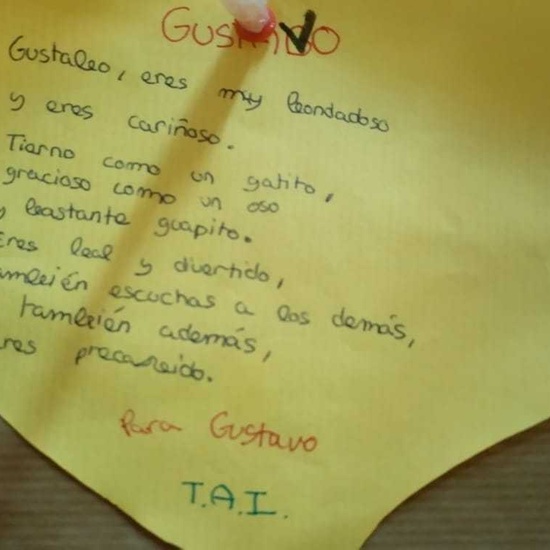 GUSTAVO
Gustabo, eres muy bondadoso
y eres cariñoso.
Tierno como un gatito,
gracioso como un oso
y bastante guapito.
Eres leal y divertido,
también escuchas a los demás,
también además,
eres precavido.
Para Gustavo
T.A.I.